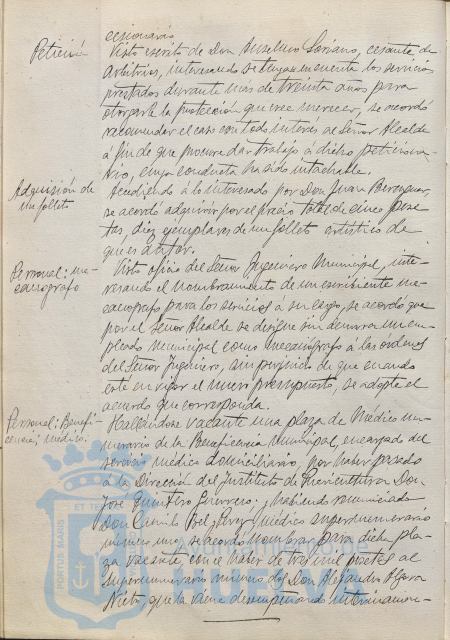 cesionario
Petición
Visto escrito de Don Anselmo Soriano, cesante de
Arbitrios, interesando se tenga en cuenta los servicios
prestados durante mas de treinta años para
otorgarle la protección que cree merecer, se acordó
recomendar el caso con todo interés al Señor Alcalde
á fin de que procure dar trabajo á dicho peticiona-
rio, cuya conducta ha sido intachable.
Adquisión de
un folleto
Accediendo á lo interesado por Don Juan Berenguer,
se acordó adquirir por el precio total de cinco pese-
tas, diez ejemplares de un folleto artístico de
que es autor.
Personal: me-
canografo
Visto oficio del Señor Ingeniero Municipal, inte-
resando el nombramiento de un escribiente me-
canografo para los servicios á su cargo, se acordó que
por el Señor Alcalde se designe sin demora un em-
pleado municipal como mecanógrafo á las ordenes
del Señor Ingeniero, sin perjuicio de que cuando
esté en vigor el nuevo presupuesto, se adopte el
acuerdo que corresponda.
Personal: Benefi-
cencia; médico.
Hallandose vacante una plaza de Médico nu-
merario de la Beneficencia Municipal, encargado del
servicio médico domiciliario, por haber pasado
á la Dirección del Instituto de Puericultura Don
José Quintero Guerrero; y habiendo renunciado
Don Camilo Bel, Médico supernumerario
número uno, se acordó nombrar para dicha pla-
za vacante, con el haber de tres mil pesetas al
supernumerario número dos Don Alejandro
Nieto, que la viene desempeñando interinamen-
ET TE
PORTUS MAGNI
Ayuntamiento de